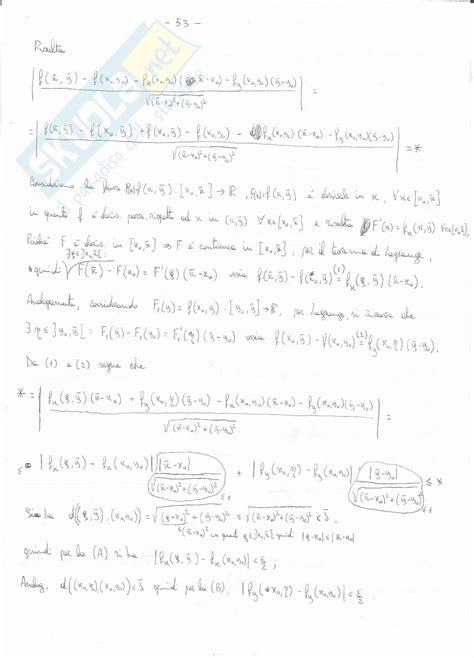 - 53 -
Risulta
| f(x̄,ȳ) - f(x₀,y₀) - fx(x₀,y₀)(x̄-x₀) - fy(x₀,y₀)(ȳ-y₀) / √((x̄-x₀)²+(ȳ-y₀)²) | =
= | f(x̄,ȳ) - f(x₀,ȳ) + f(x₀,ȳ) - f(x₀,y₀) - fx(x₀,y₀)(x̄-x₀) - fy(x₀,y₀)(ȳ-y₀) / √((x̄-x₀)²+(ȳ-y₀)²) | = *
Consideriamo la funz. F(x)=f(x,ȳ) : [x₀,x̄] → ℝ, F(x)=f(x,ȳ) è derivab. in x, ∀x∈[x₀,x̄]
in quanto f è deriv. parz. rispetto ad x in (x,ȳ) ∀x∈[x₀,x̄] e risulta F'(x) = fx(x,ȳ) ∀x∈[x₀,x̄].
Poiché F è deriv. in [x₀,x̄] ⇒ F è continua in [x₀,x̄], per il teorema di Lagrange,
∃ξ∈]x₀,x̄[:
quindi F(x̄) - F(x₀) = F'(ξ)(x̄-x₀) ossia f(x̄,ȳ) - f(x₀,ȳ) =(1) fx(ξ,ȳ)(x̄-x₀).
Analogamente, considerando F₁(y) = f(x₀,y) : [y₀,ȳ] → ℝ, per Lagrange, si trova che
∃η∈]y₀,ȳ[ : F₁(ȳ) - F₁(y₀) = F₁'(η)(ȳ-y₀) ossia f(x₀,ȳ) - f(x₀,y₀) =(2) fy(x₀,η)(ȳ-y₀).
Da (1) e (2) segue che
* = | fx(ξ,ȳ)(x̄-x₀) + fy(x₀,η)(ȳ-y₀) - fx(x₀,y₀)(x̄-x₀) - fy(x₀,y₀)(ȳ-y₀) / √((x̄-x₀)²+(ȳ-y₀)²) | =
≤ | fx(ξ,ȳ) - fx(x₀,y₀) | |x̄-x₀| / √((x̄-x₀)²+(ȳ-y₀)²) ≤1 + | fy(x₀,η) - fy(x₀,y₀) | |ȳ-y₀| / √((x̄-x₀)²+(ȳ-y₀)²) ≤1 ≤ *
Si ha d((ξ,ȳ),(x₀,y₀)) = √((ξ-x₀)²+(ȳ-y₀)²) ≤ √((x̄-x₀)²+(ȳ-y₀)²) < δ,
≤(x̄-x₀)² in quanto ξ∈]x₀,x̄[ quindi |ξ-x₀|≤|x̄-x₀|
quindi per la (A) si ha | fx(ξ,ȳ) - fx(x₀,y₀) | < ε/2;
Analog. d((x₀,η),(x₀,y₀)) < δ quindi per la (B), | fy(x₀,η) - fy(x₀,y₀) | < ε/2.